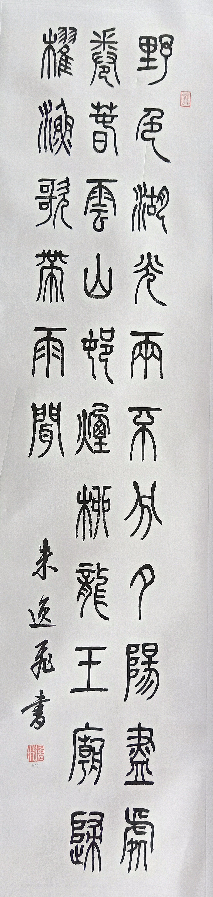 野色湖光兩不分夕陽盡處
卷春雲山邨煙柳龍王廟歸
櫂漁歌帶雨聞
朱逸飛書